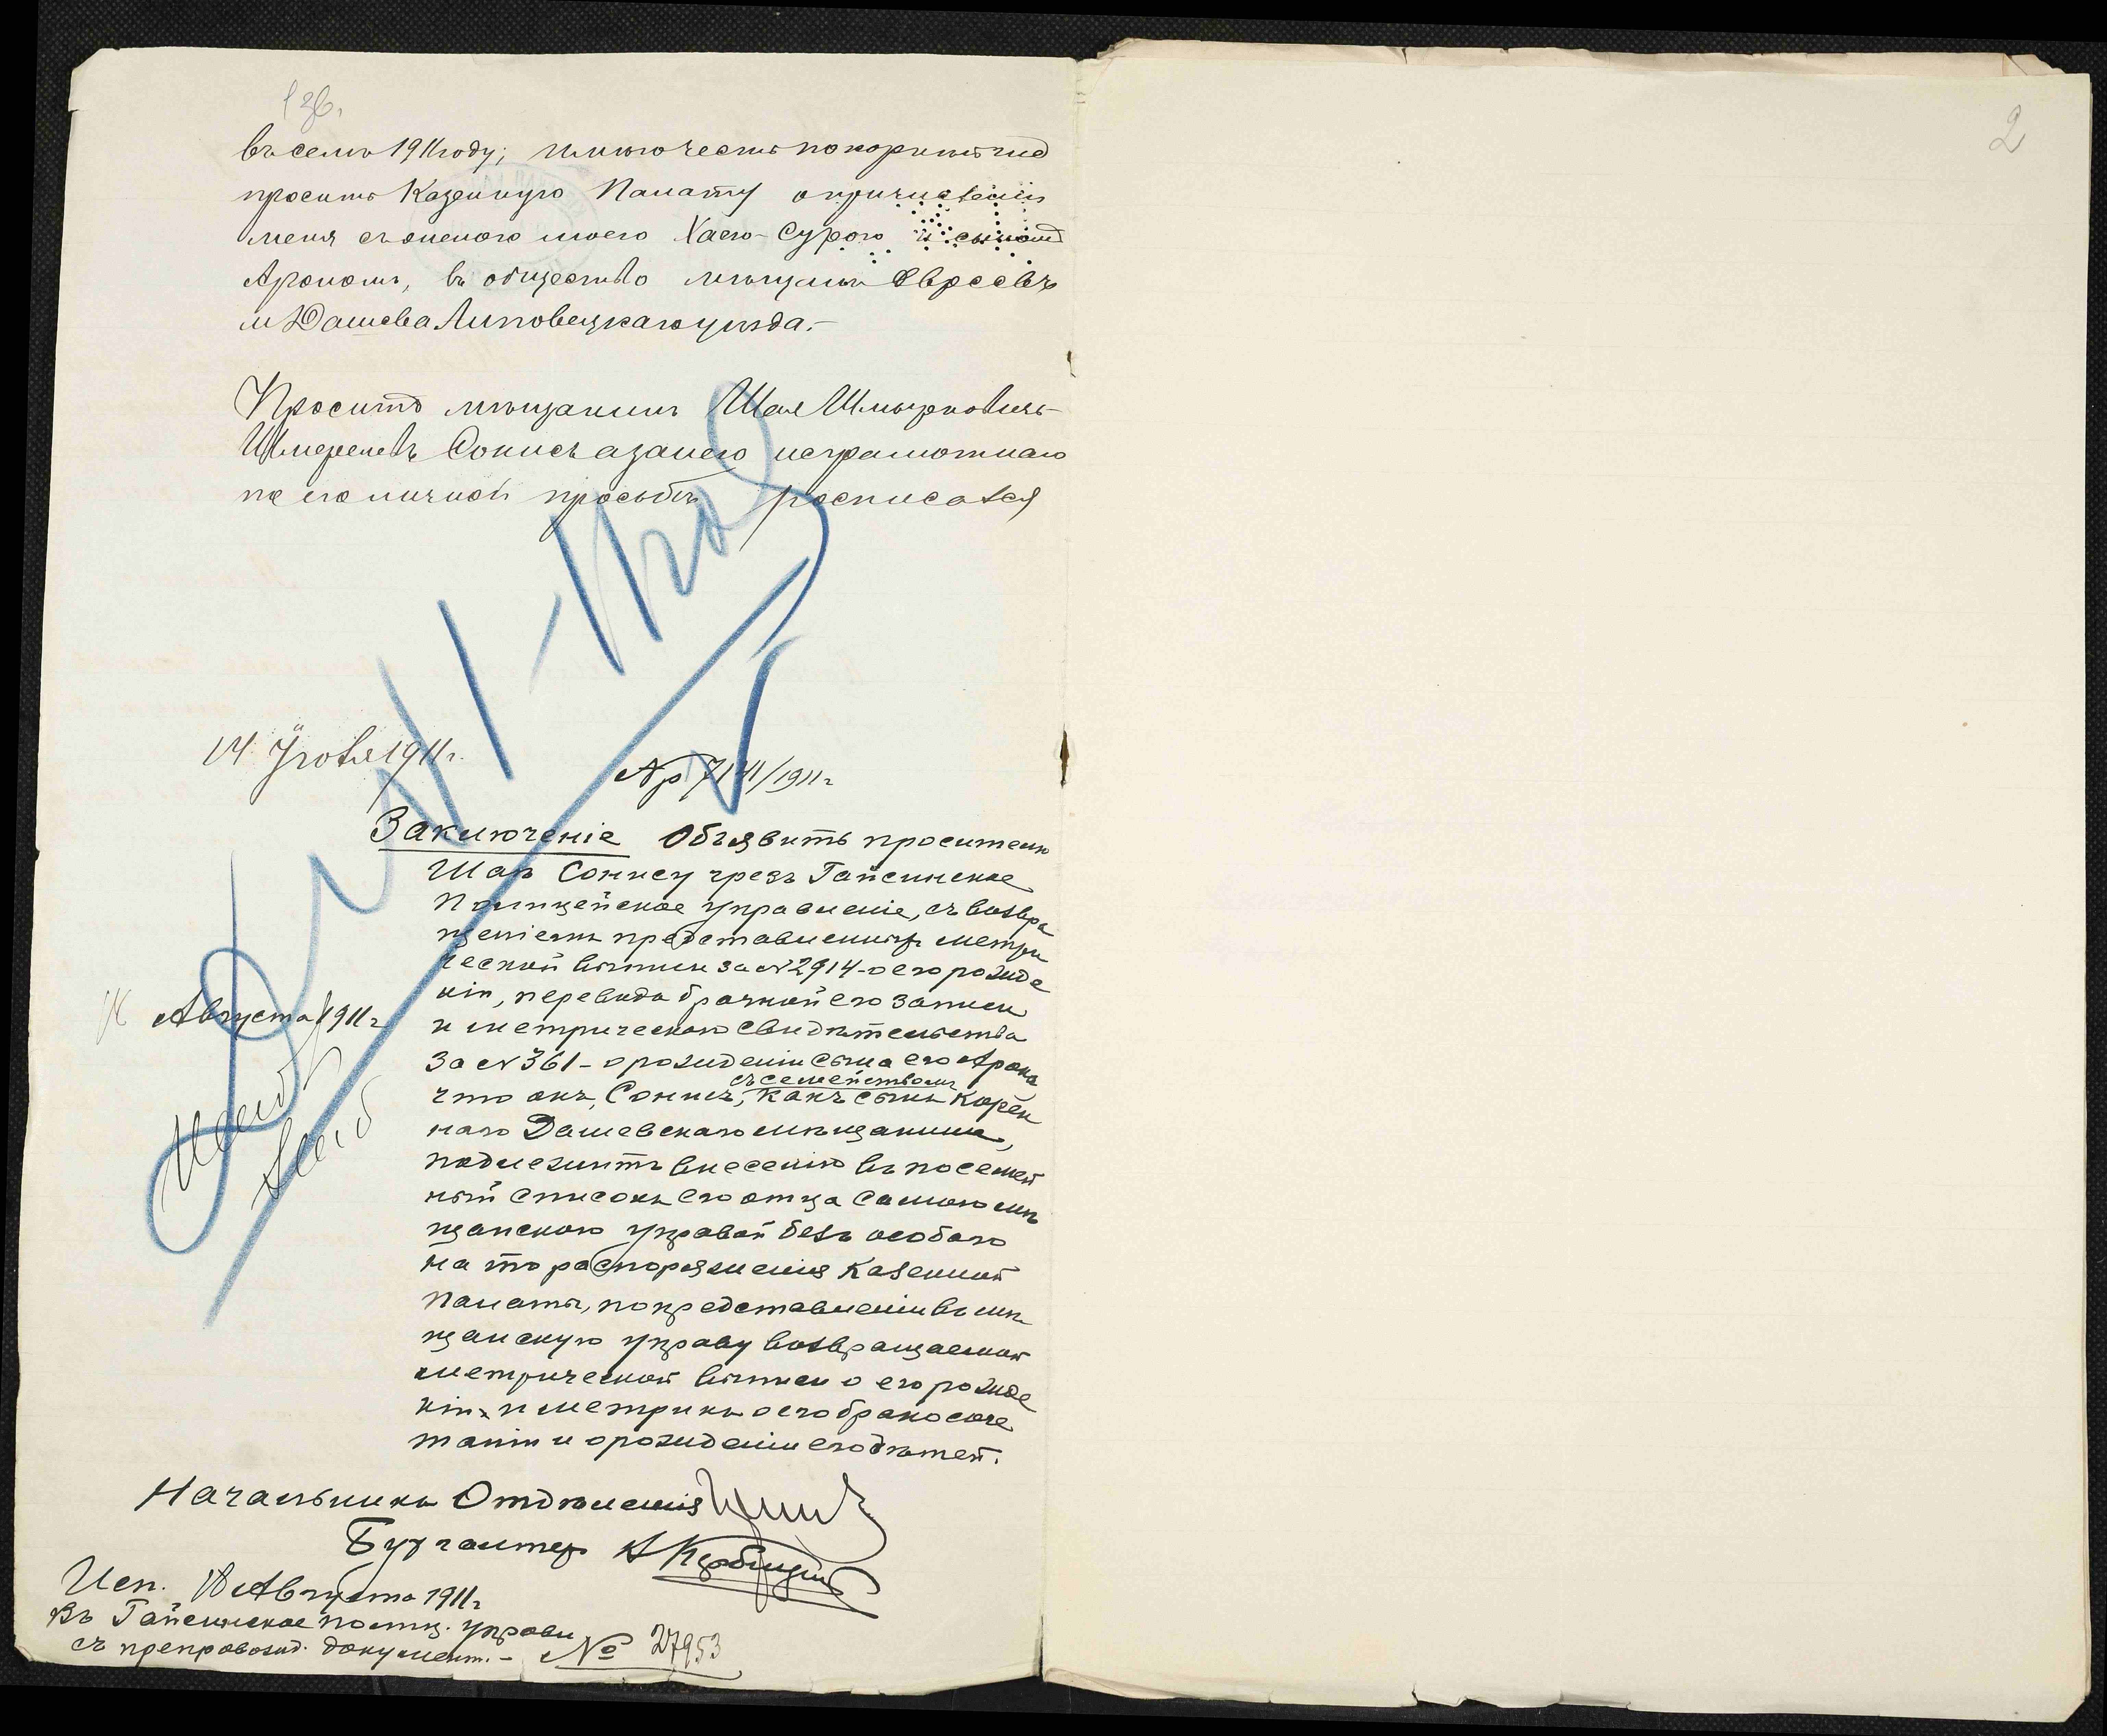 1 об.
2
въ семъ 1911 году; имѣю честь покорнѣйше
просить Казенную Палату о причисленіи
меня съ женою моею Хаею-Сурою и сыномъ
Арономъ, въ общество мѣщанъ Евреевъ
м Дашева Липовецкаго уѣзда.-
Проситъ мѣщанинъ Шая Шмерковичъ-
Шмерелевъ Сонисъ а за него неграмотнаго
по его личной просьбѣ росписался
14 Іюля 1911 г.
Заключеніе Объявить просителю
Шаѣ Сонису чрезъ Гайсинское
Полицейское управленіе, съ возвра
щеніемъ представленныхъ метри
ческой выписи за № 2914 - о его рожде
ніи, перевода брачной его записи
и метрическаго свидѣтельства
за № 361 - о рожденіи сына его Арона
съ семействомъ
что онъ, Сонисъ, какъ сынъ корен
ного Дашевскаго мѣщанина,
подлежитъ внесенію въ посемей
ный списокъ его отца самою мѣ
щанскою управой безъ особаго
на то распоряженія Казенной
Палаты, по представленіи въ мѣ
щанскую управу возвращаемой
метрической выписи о его рожде
ніи и метрики о его бракосоче
таніи и о рожденіи его дѣтей.
Августа 1911 г
Начальникъ Отдѣленія
Бухгалтеръ
Исп. 18 Августа 1911 г
Въ Гайсинское полиц. управл
съ препровожд. документ. - № 27953